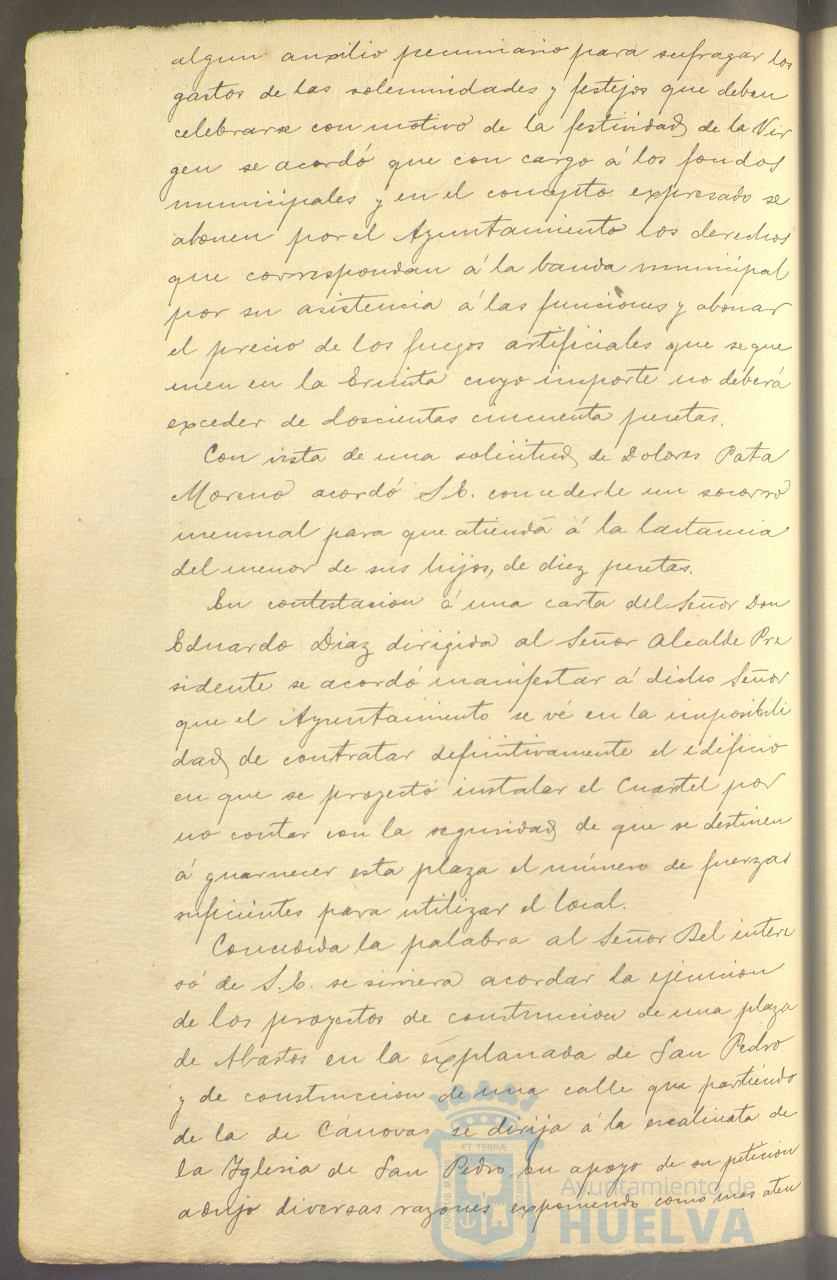 algun auxilio pecuniario para sufragar los
gastos de las solemnidades y festejos que deben
celebrarse con motivo de la festividad de la Vir
gen se acordó que con cargo á los fondos
municipales y en el concepto expresado se
abonen por el Ayuntamiento los derechos
que correspondan á la banda municipal
por su asistencia á las funciones y abonar
el precio de los fuegos artificiales que se que
men en la Ermita cuyo importe no deberá
exceder de doscientas cincuenta pesetas.
Con vista de una solicitud de Dolores Pata
Moreno acordó S.E. concederle un socorro
mensual para que atienda á la lactancia
del menor de sus hijos, de diez pesetas.
En contestacion á una carta del Señor Don
Eduardo Diaz dirigida al Señor Alcalde Pre
sidente se acordó manifestar á dicho Señor
que el Ayuntamiento se vé en la imposibili
dad de contratar definitivamente el edificio
en que se proyectó instalar el Cuartel por
no contar con la seguridad de que se destinen
á guarnecer esta plaza el número de fuerzas
suficientes para utilizar el local.
Concedida la palabra al Señor Bel intere
só de S.E. se sirviera acordar la ejecucion
de los proyectos de construccion de una plaza
de Abastos en la explanada de San Pedro
y de construccion de una calle que partiendo
de la de Cánovas se dirija á la escalinata de
la Yglesia de San Pedro. en apoyo de su peticion
adujo diversas razones exponiendo como mas aten
PORTUS ET TERRÆ
Ayuntamiento de
HUELVA